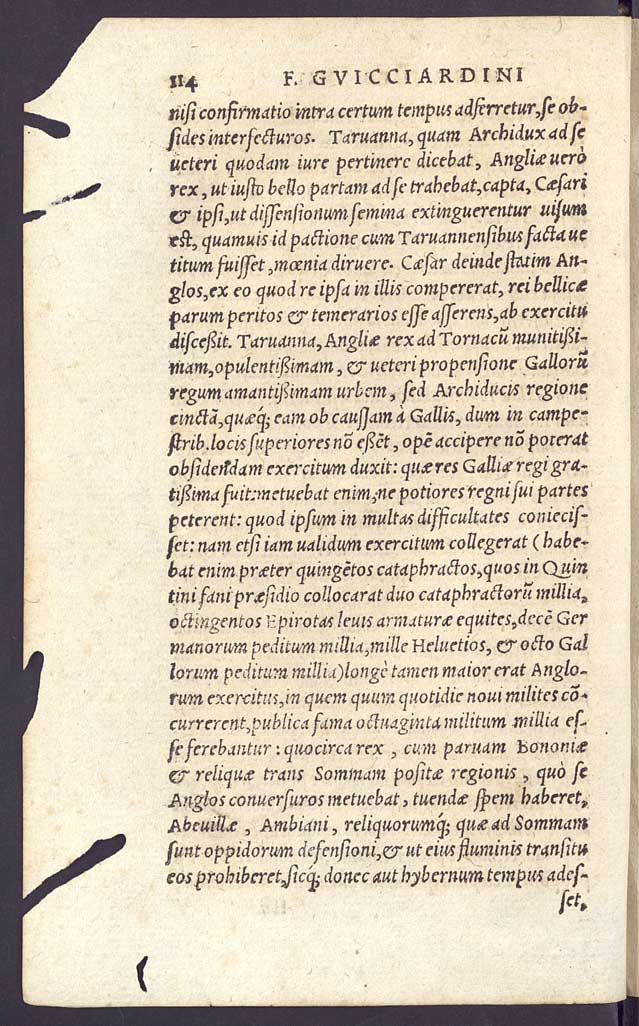 114 F. GVICCIARDINI
nisi confirmatio intra certum tempus adferretur, se ob-
sides interfecturos. Taruanna, quam Archidux ad se
ueteri quodam iure pertinere dicebat, Angliæ uerò
rex, ut iusto bello partam ad se trahebat, capta, Cæsari
& ipsi, ut dissensionum semina extinguerentur uisum
est, quamuis id pactione cum Taruannensibus facta ue
titum fuisset, mœnia diruere. Cæsar deinde statim An-
glos, ex eo quod re ipsa in illis compererat, rei bellicæ
parum peritos & temerarios esse asserens, ab exercitu
discessit. Taruanna, Angliæ rex ad Tornacũ munitissi-
mam, opulentissimam, & ueteri propensione Gallorũ
regum amantissimam urbem, sed Archiducis regione
cinctã, quæq; eam ob caussam à Gallis, dum in campe-
strib. locis superiores nõ essẽt, opẽ accipere nõ poterat
obsidendam exercitum duxit: quæ res Galliæ regi gra-
tissima fuit: metuebat enim, ne potiores regni sui partes
peterent: quod ipsum in multas difficultates coniecis-
set: nam etsi iam ualidum exercitum collegerat (habe-
bat enim præter quingẽtos cataphractos, quos in Quin
tini fani præsidio collocarat duo cataphractorũ millia,
octingentos Epirotas leuis armaturæ equites, decẽ Ger
manorum peditum millia, mille Heluetios, & octo Gal
lorum peditum millia) longè tamen maior erat Anglo-
rum exercitus, in quem quum quotidie noui milites cõ-
currerent, publica fama octuaginta militum millia es-
se ferebantur: quocirca rex, cum paruam Bononiæ
& reliquæ trans Sommam positæ regionis, quò se
Anglos conuersuros metuebat, tuendæ spem haberet,
Abeuillæ, Ambiani, reliquorumq; quæ ad Sommam
sunt oppidorum defensioni, & ut eius fluminis transitu
eos prohiberet, sicq; donec aut hybernum tempus ades-
set,